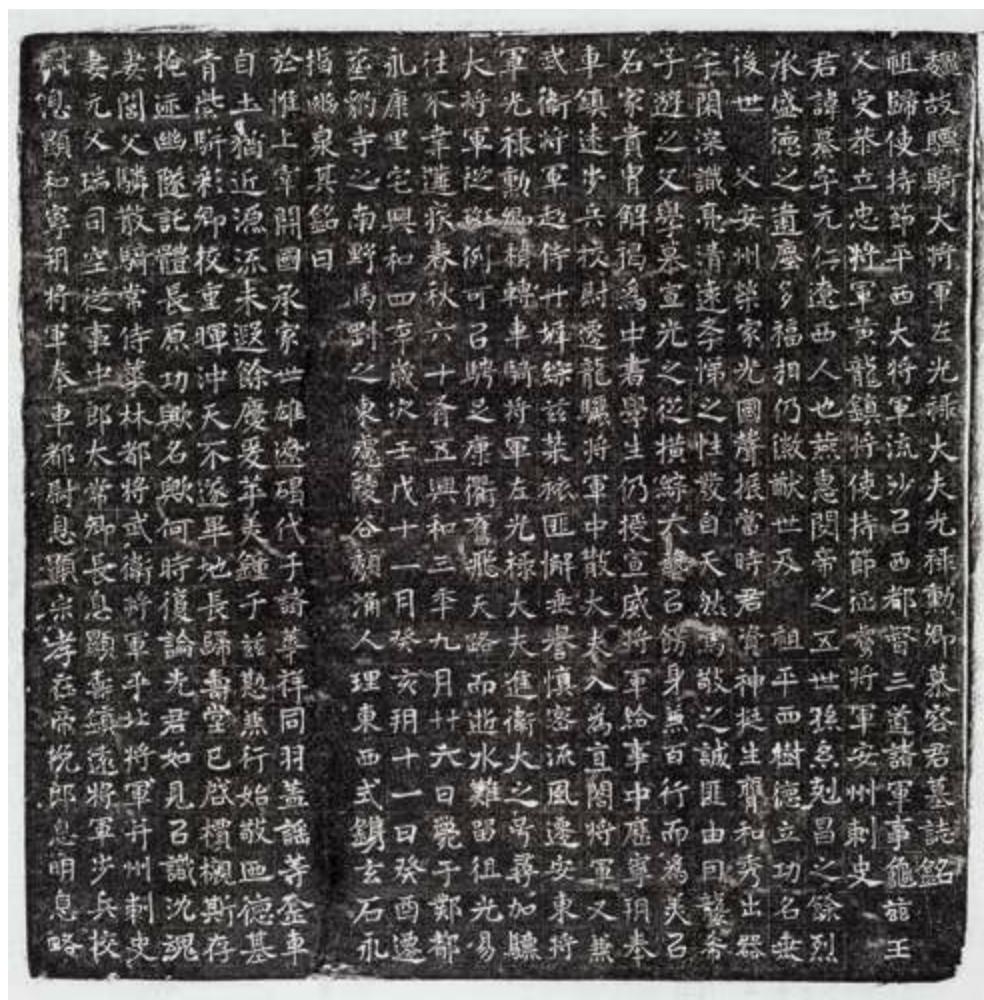 魏故驃騎大將軍左光祿大夫光祿勳卿慕容君墓誌銘
祖歸使持節平西大將軍流沙已西都督三道諸軍事龜茲王
父定恭立忠將軍黃龍鎮將使持節征虜將軍安州刺史
君諱纂字元仁遼西人也燕惠閔帝之五世孫烝剋昌之餘烈
承盛德之遺慶多福相仍徽猷世及　祖平西樹德立功名垂
後世　父安州榮家光國聲振當時君資神挺生膺和秀出器
宇閑深識亮清遠孝悌之性發自天然篤敬之誠匪由回
子遊之父學慕宣光之從橫綜六藝已餝身兼百行而為美已
名家貴胄解褐為中書學生仍授宣威將軍給事中歷寧朔奉
車鎮遠步兵校尉遷龍驤將軍中散大夫入為直閤將軍又兼
武衛將軍起侍丹墀綜茲禁旅匪懈垂譽慎密流風遷安東將
軍光祿勳卿楨轉車騎將軍左光祿大夫進衛大之号尋加驃
大將軍從班例可已騁足康衢奮飛天路而逝水難留徂光易
往不幸遘疾春秋六十有五興和三年九月廿六日薨于鄴都
永康里宅興和四年歲次壬戌十一月癸亥朔十一日癸酉遷
窆豹寺之南野馬罡之東處陵谷翻涌人理東西式鐫玄石永
指幽泉其銘曰
於惟上宰開國承家世雄遼碣代子諸華祥同羽蓋謠等金車
自土猶近源流未遐餘慶爰萃美鍾于茲懃無行始敬迺德基
青紫斯彩卿校重暉沖天不遂畢地長歸壽堂已啟櫝櫬斯存
掩迹幽隧託體長原功歟名歟何時復論先君如見已識沈魂
妻閭父驎散騎常侍華林都將武衛將軍平北將軍并州刺史
妻元父瑞司空從事中郎大常卿長息顯熹鎮遠將軍步兵校
尉息顯和寧朔將軍奉車都尉息顯宗孝莊帝挽郎息明息略